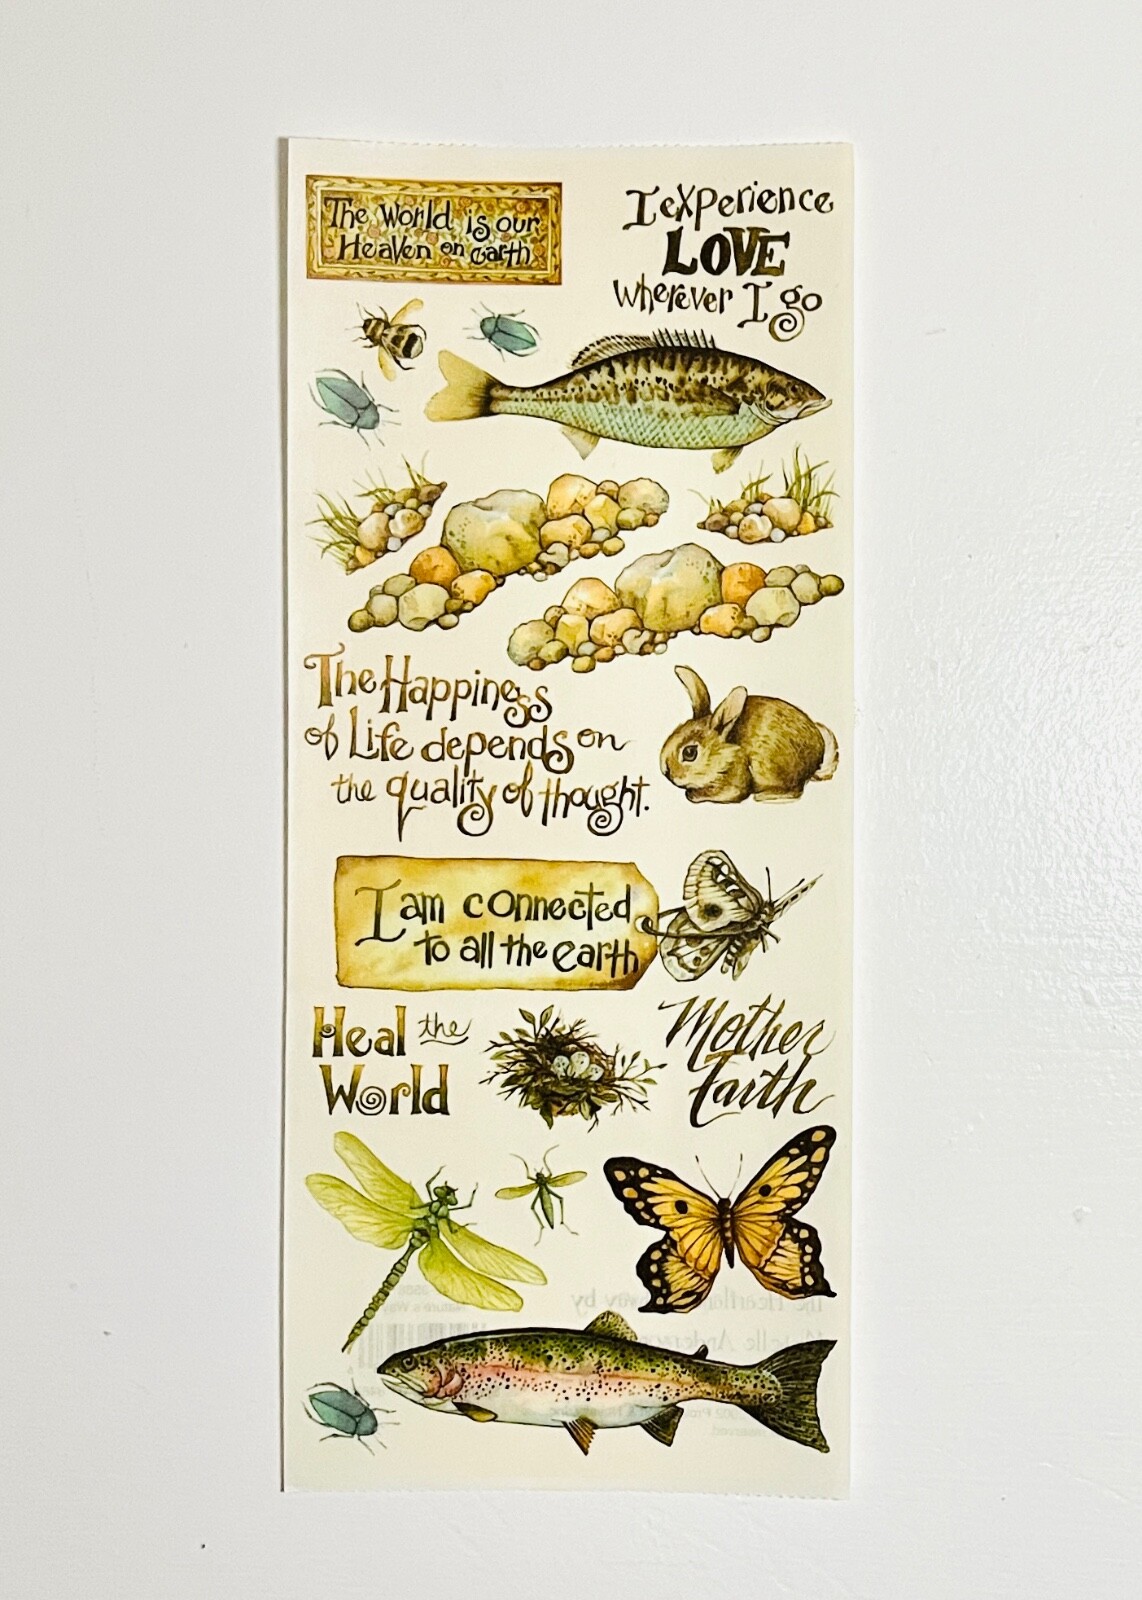 The World is our
Heaven on earth
I experience
LOVE
wherever I go
The Happiness
of Life depends on
the quality of thought.
I am connected
to all the earth
Heal the
World
Mother
Earth
Nature's Way
The Heartland
by